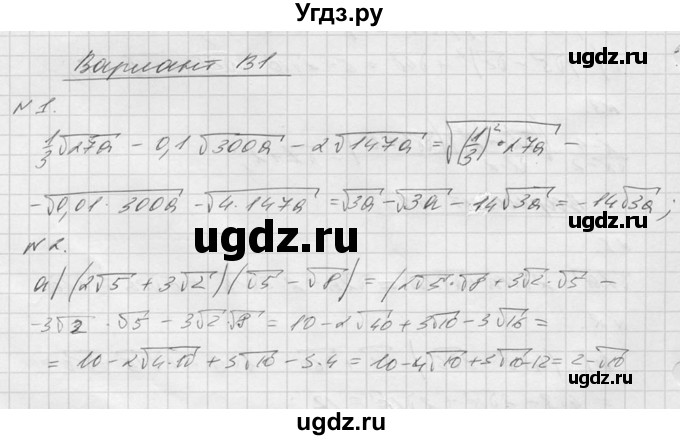 Угдз.ру
Вариант В1
ugdz.ru
ugdz.ru
№ 1.
1/3√27a − 0,1√300a − 2√147a = √((1/3)²·27a) −
−√0,01·300a − √4·147a = √3a − √3a − 14√3a = −14√3a;
ugdz.ru
№ 2.
а) (2√5 + 3√2)(√5 − √8) = (2√5·√8 + 3√2·√5 −
−3√2·√5 − 3√2·√8 = 10−2√40+3√10−3√16 =
= 10−2√4·10 + 3√10 − 3·4 = 10−4√10+3√10−12 = 2−√10
ugdz.ru
ugdz.ru